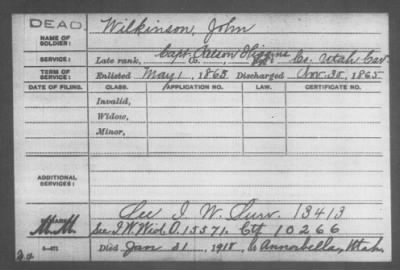 DEAD
NAME OF SOLDIER:
Wilkinson, John
SERVICE:
Capt. Nelson Higgins
Late rank, Co. Utah Cav
TERM OF SERVICE:
Enlisted May 1, 1865 Discharged Nov. 30, 1865
DATE OF FILING. CLASS. APPLICATION NO. LAW. CERTIFICATE NO.
Invalid,
Widow,
Minor,
ADDITIONAL SERVICES:
See I. W. Surv. 13413
See I. W. Wid. O. 15571. Ctf 10266
Died Jan 31, 1918, Annabella, Utah.